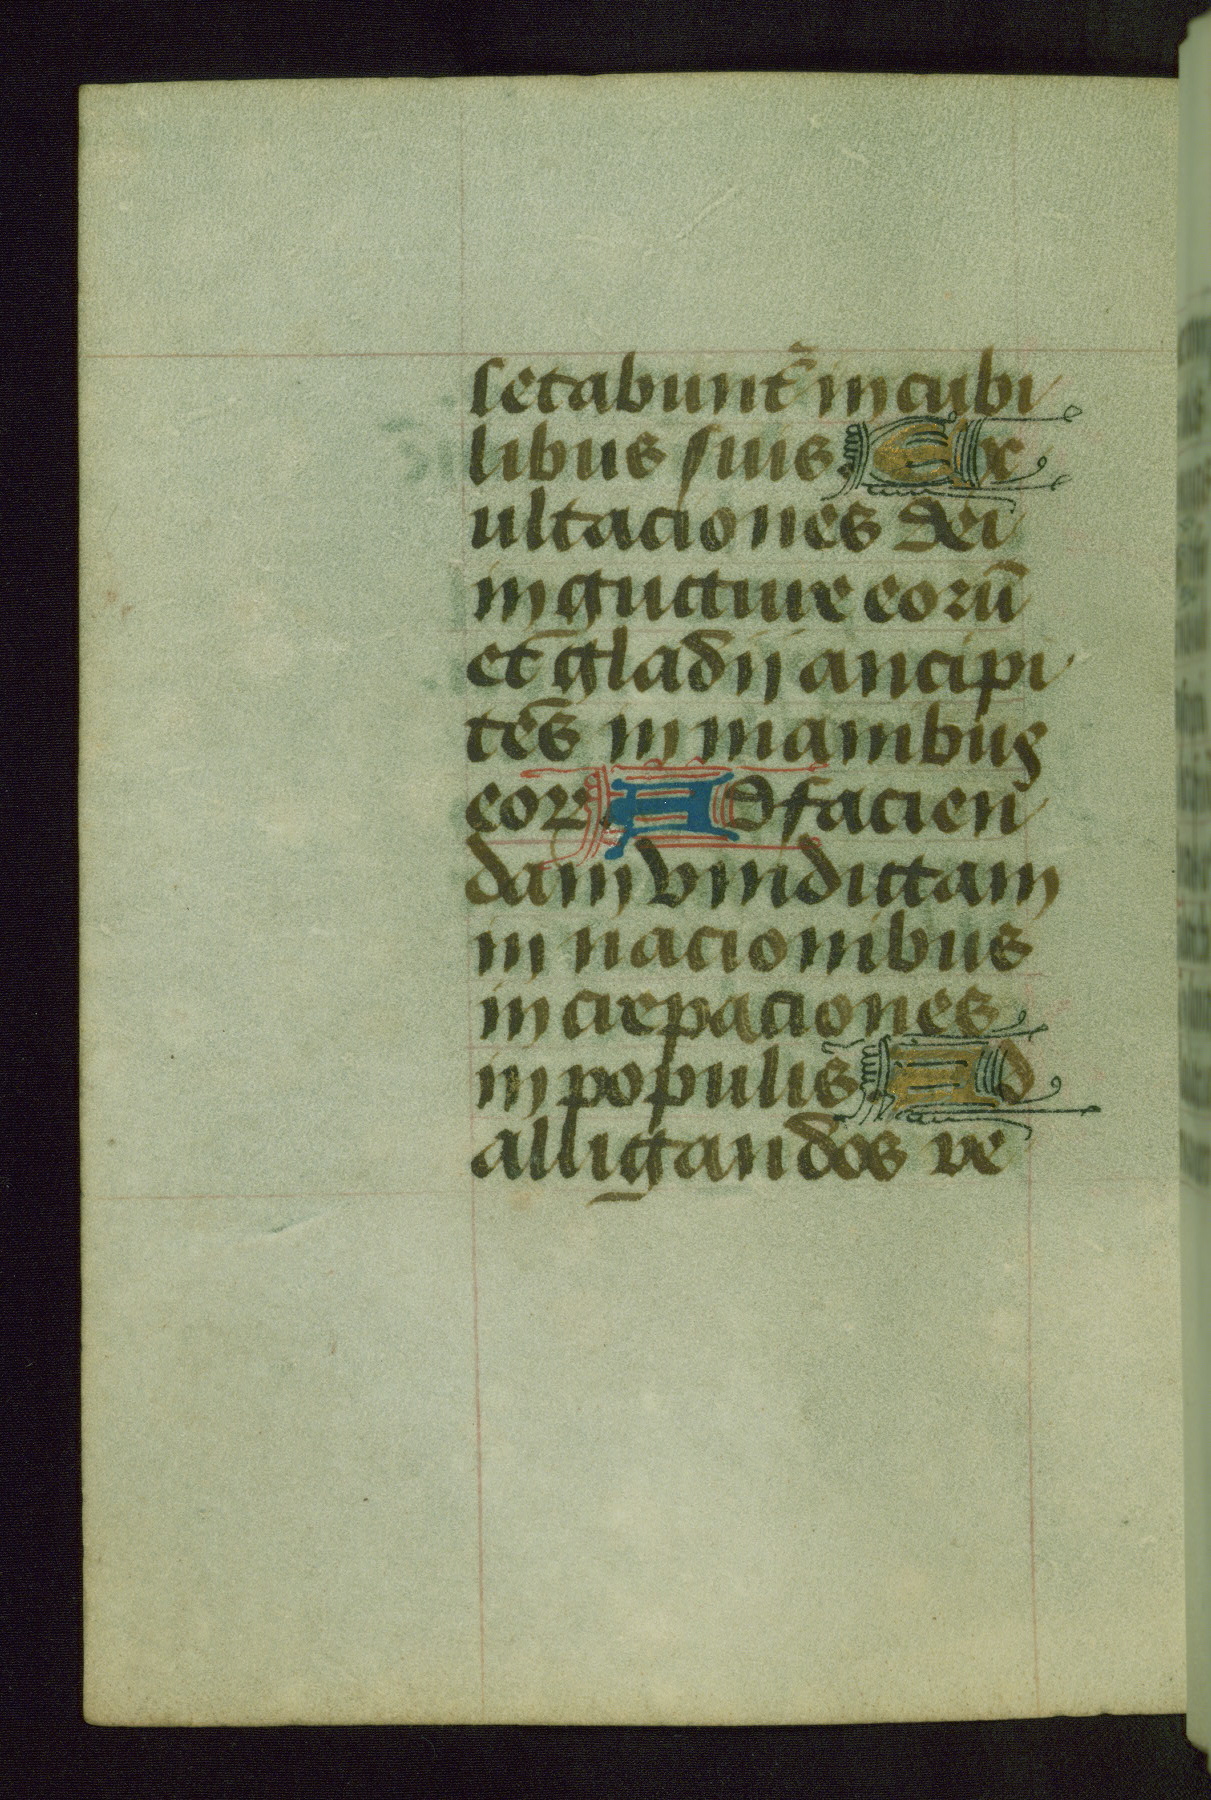 setabunt᷑ in cubi
libus suis. Ex
ultaciones dei
in gutture eorū
et gladij ancipi
tes in manibus
eorꝝ. Ad facien
dam vindictam
in nacionibus
increpaciones
in populis. Ad
alligandos re